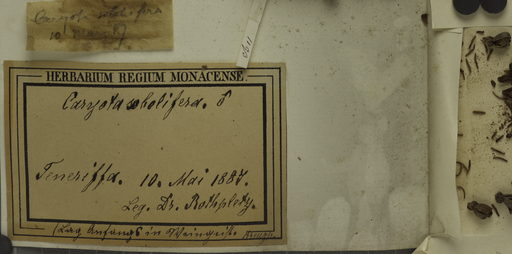 Caryota sobolifera
10 Mai 87
HERBARIUM REGIUM MONACENSE.
Caryota sobolifera. ♂
Teneriffa. 10. Mai 1887.
Leg. Dr. Rothpletz.
(Lag Anfangs in Weingeist.